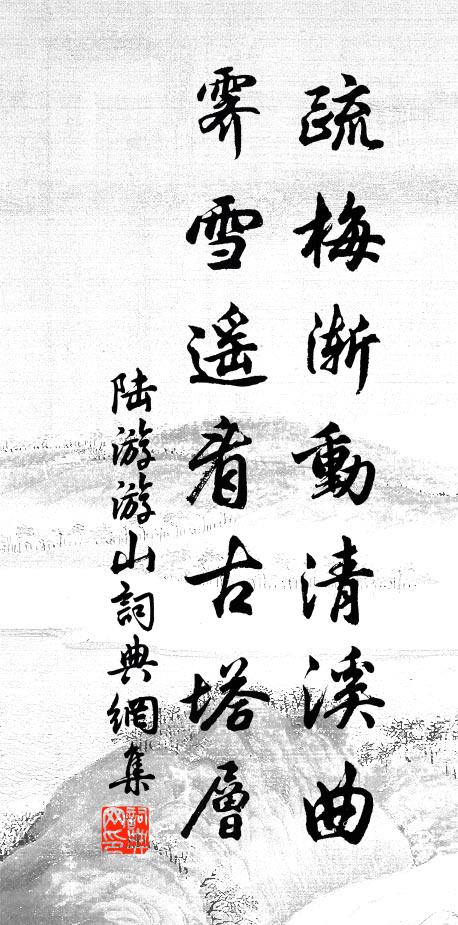 疏梅漸動清溪曲
霽雪遥看古塔層
陆游游山詞典網集